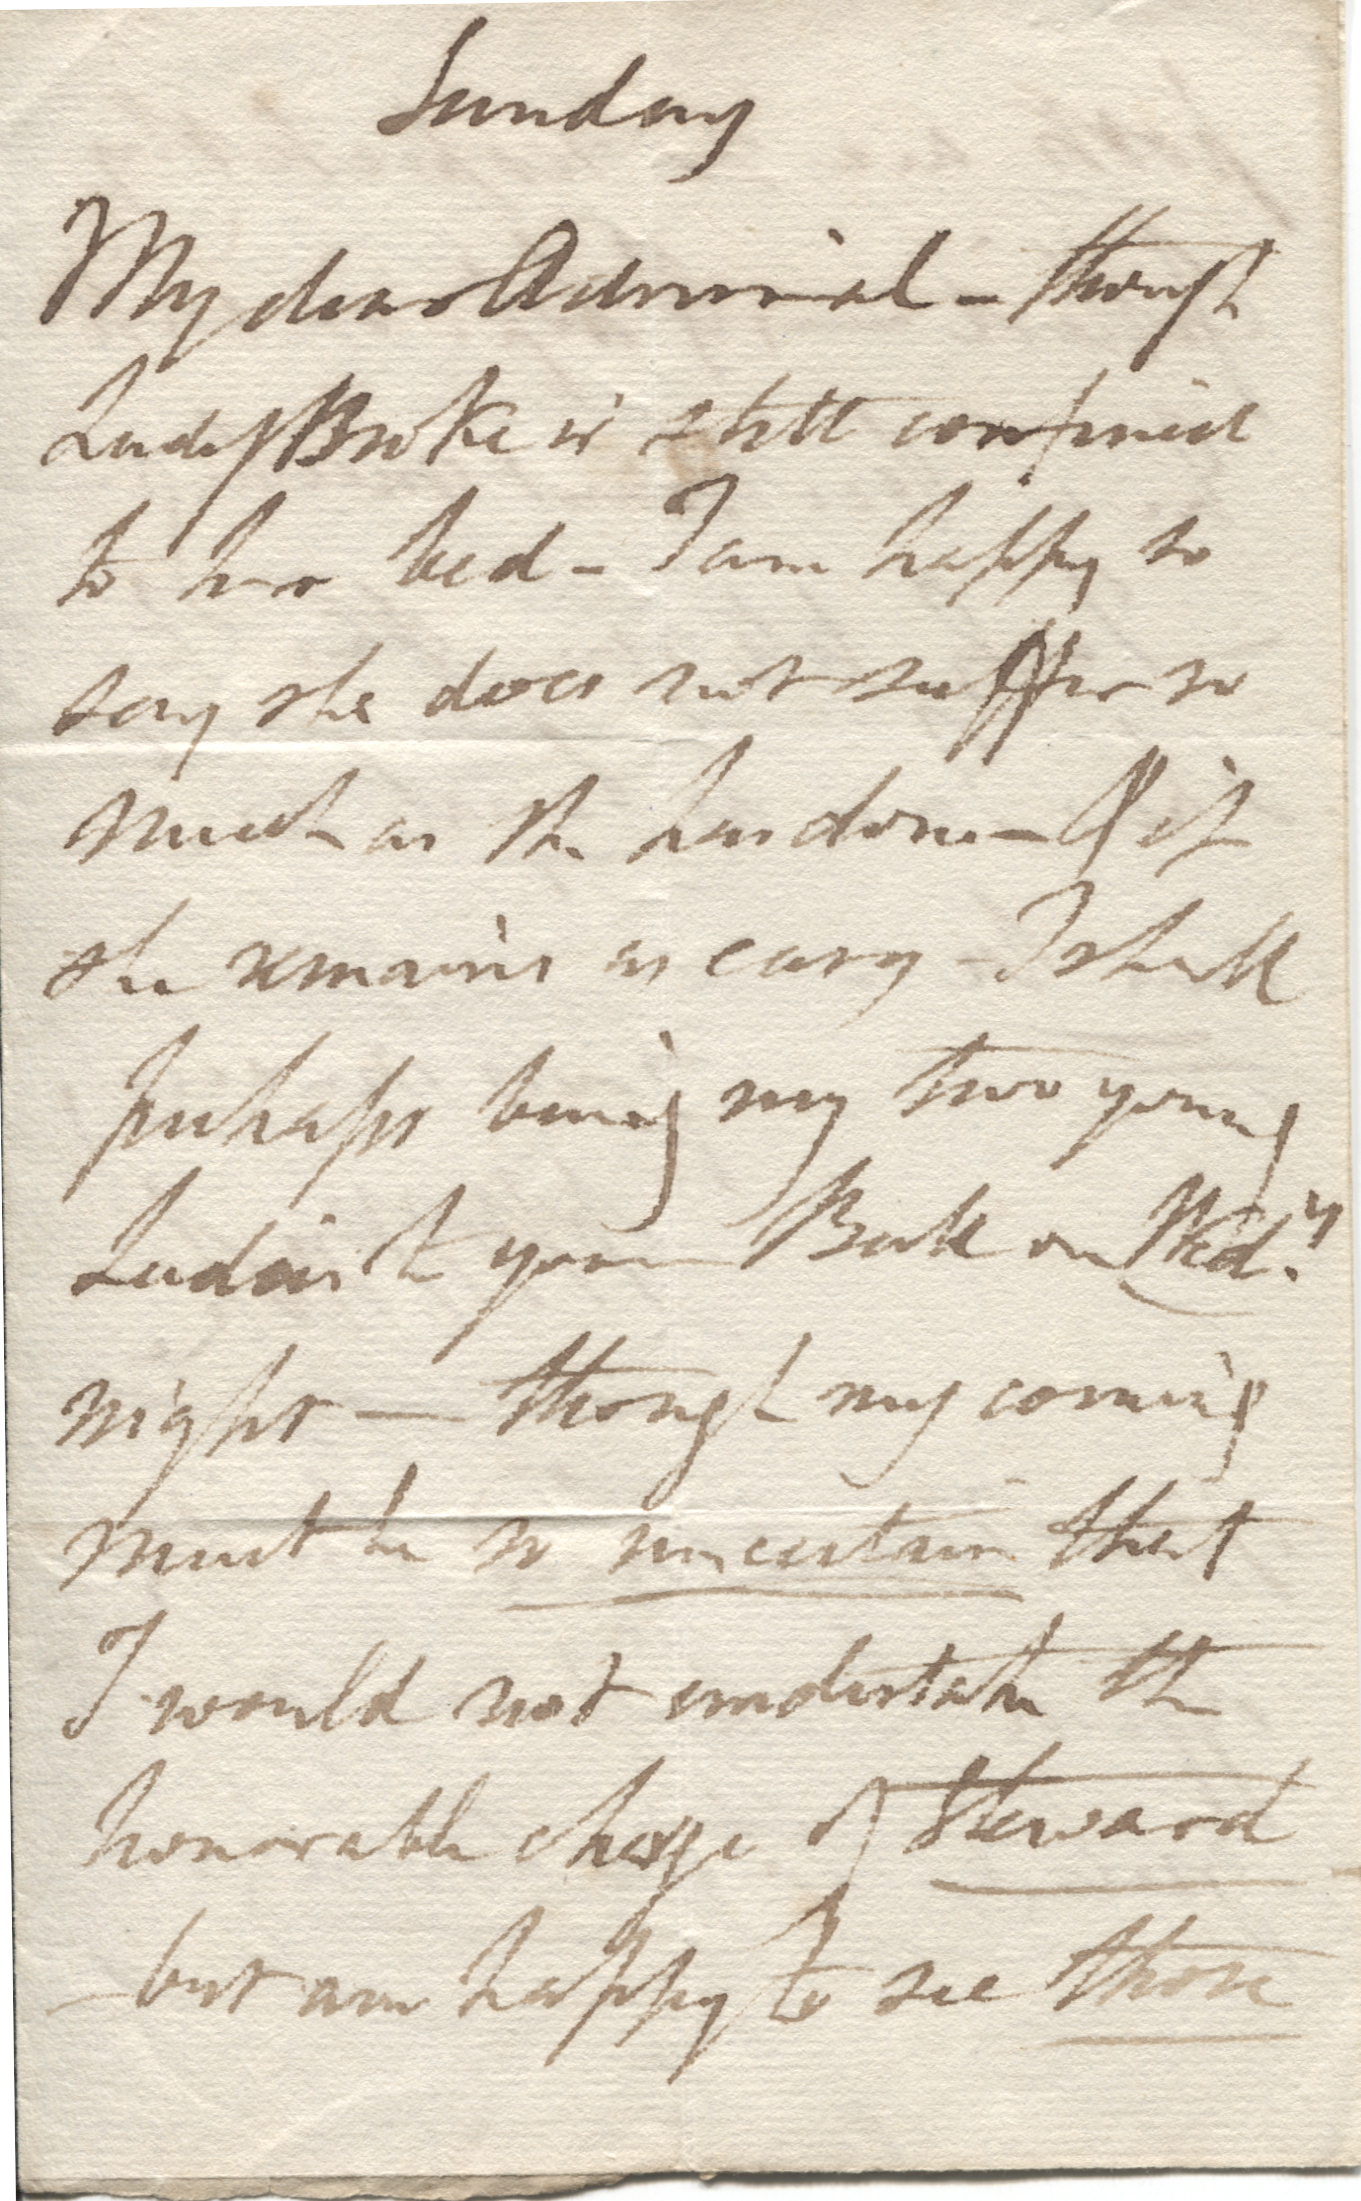 Sunday
My dear Admiral – though
Lady Broke is still confined
to her bed – I am happy to
say she does not suffer so
much as she has done – & if
she remains as easy – I shall
perhaps bring my two young
Ladies to your Ball on Wed.y
night — though my coming
must be so uncertain that
I would not undertake the
honorable charge of Steward
– but am happy to see those